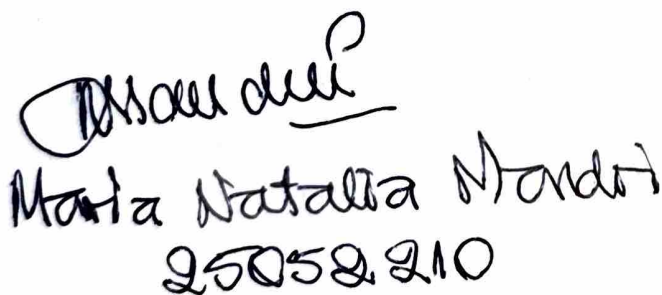 Maria Natalia Mandri
25052210